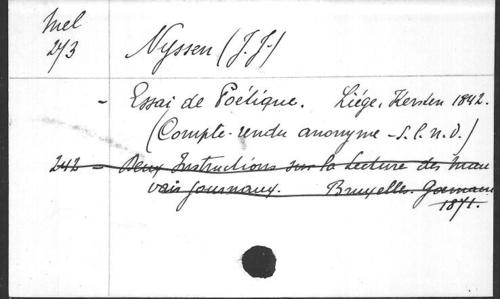 Mel
243
Nyssen (J.J.)
- Essai de Poétique. Liége, Kersten 1842.
(Compte-rendu anonyme - S.l.n.d.)
242 - Deux Instructions sur la Lecture des mau
vais journaux. Bruxelles. Goemaere
1871.